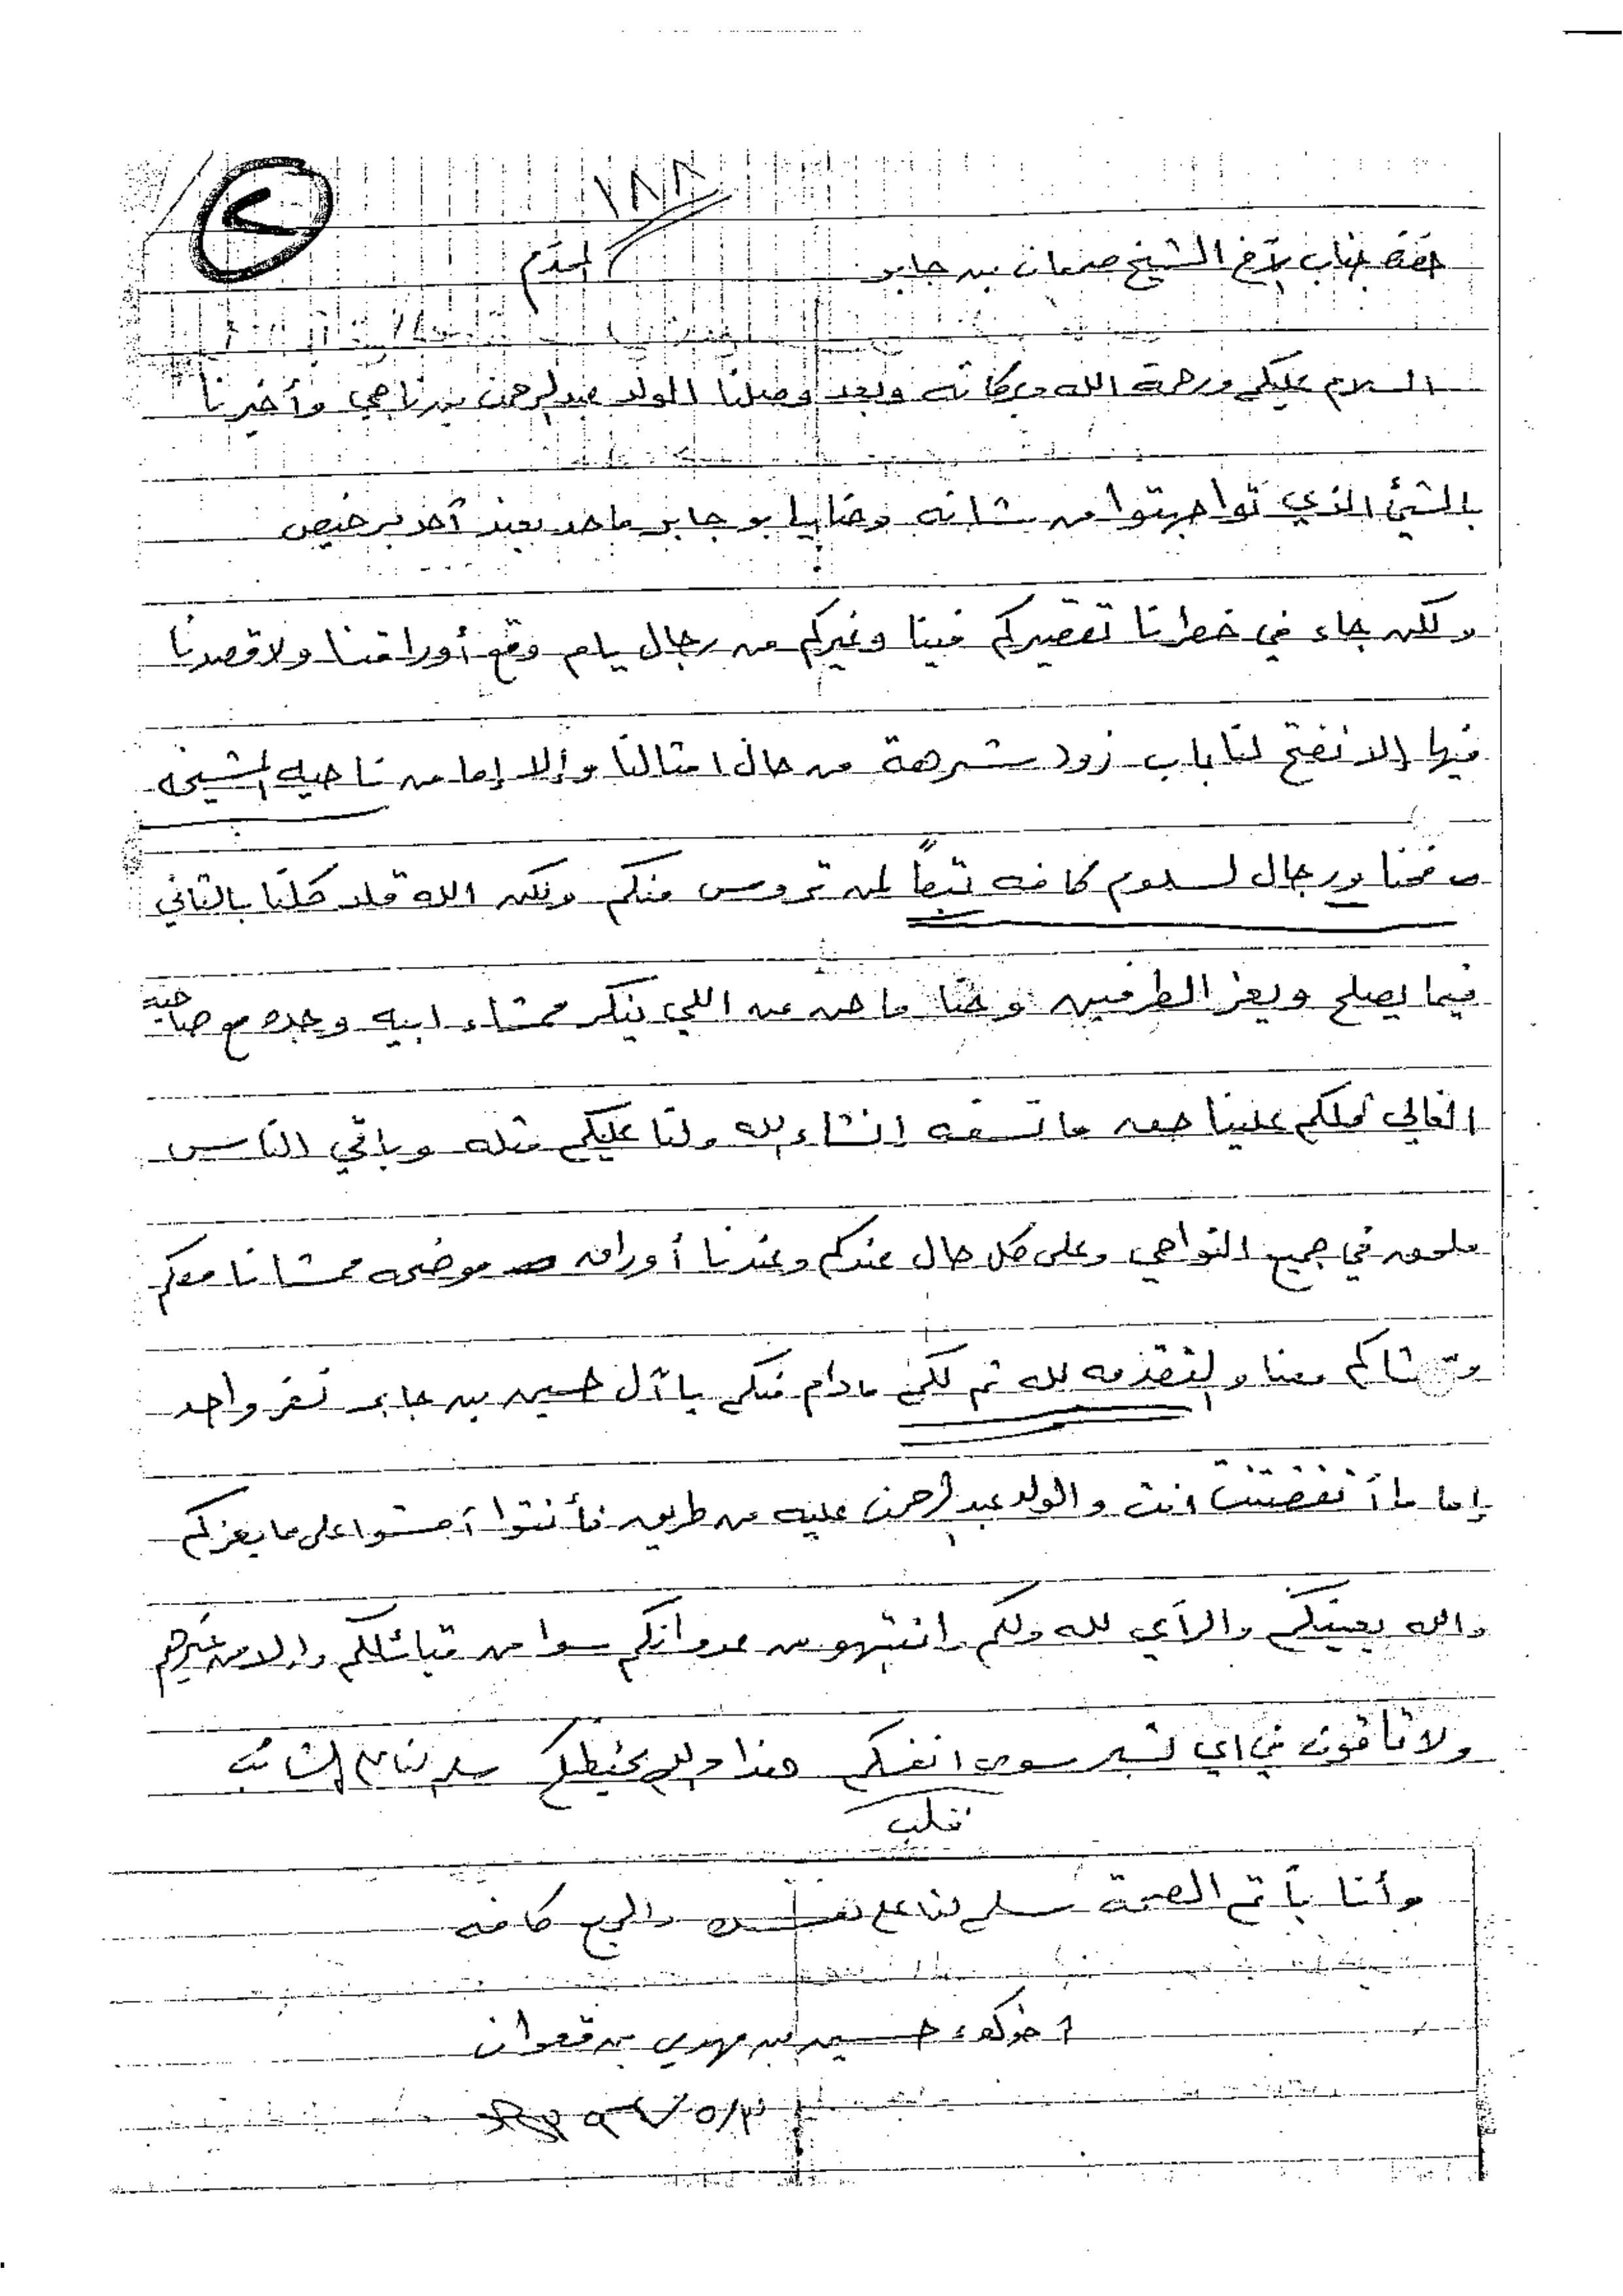 ١٨٨
٢
حضرة جناب الأخ الشيخ صمعان بن جابر المحترم
السلام عليكم ورحمة الله وبركاته وبعد وصلنا الولد عبدالرحمن بن ناجي وأخبرنا
بالشئ الذي تواجهتوا من شانه وحنا يا بو جابر ماحد بعند أحد برخيص
ولكن جاء في خطرنا تقصيركم فينا وغيركم من رجال يام وقع أوراقنا ولا قصدنا
فيها إلا نفتح لنا باب زود شرهة من حال امثالنا وإلا إما من ناحيه المشيخه
ورجال لسلوم كافه تبعاً لمن تروس منكم ولكن الله قلد كلنا بالتاني
فيما يصلح ويعز الطرفين وحنا ما حن من اللي ينكر ممشاء ابيه وجده مع صاحبه
الغالي فلكم علينا حق ما نسقه إنشاء الله ولنا عليكم مثله وباقي الناس
ملحوق في جميع النواحي وعلى كل حال عندكم وعندنا أوراق موضحه ممشانا معكم
وممشاكم معنا والتقدمه لله ثم لكم مادام منكم يا آل حسين بن جابر نفر واحد
إما ما أنت والولد عبدالرحمن عليه من طريق فأنتوا أمشوا على ما يعزكم
والله يعينكم والرأي لله ولكم وانتبهو من عدوانكم سوا من قبائلكم وإلا من غيرهم
ولا تاقون في اي شبر سوى انفسكم هذا والله يحفظكم سلم لنا على
نقلب
وأنا بأتم الصحة سلم لنا على نفسك والربع كافه
أخوكم حسين بن مهدي بن قعوان